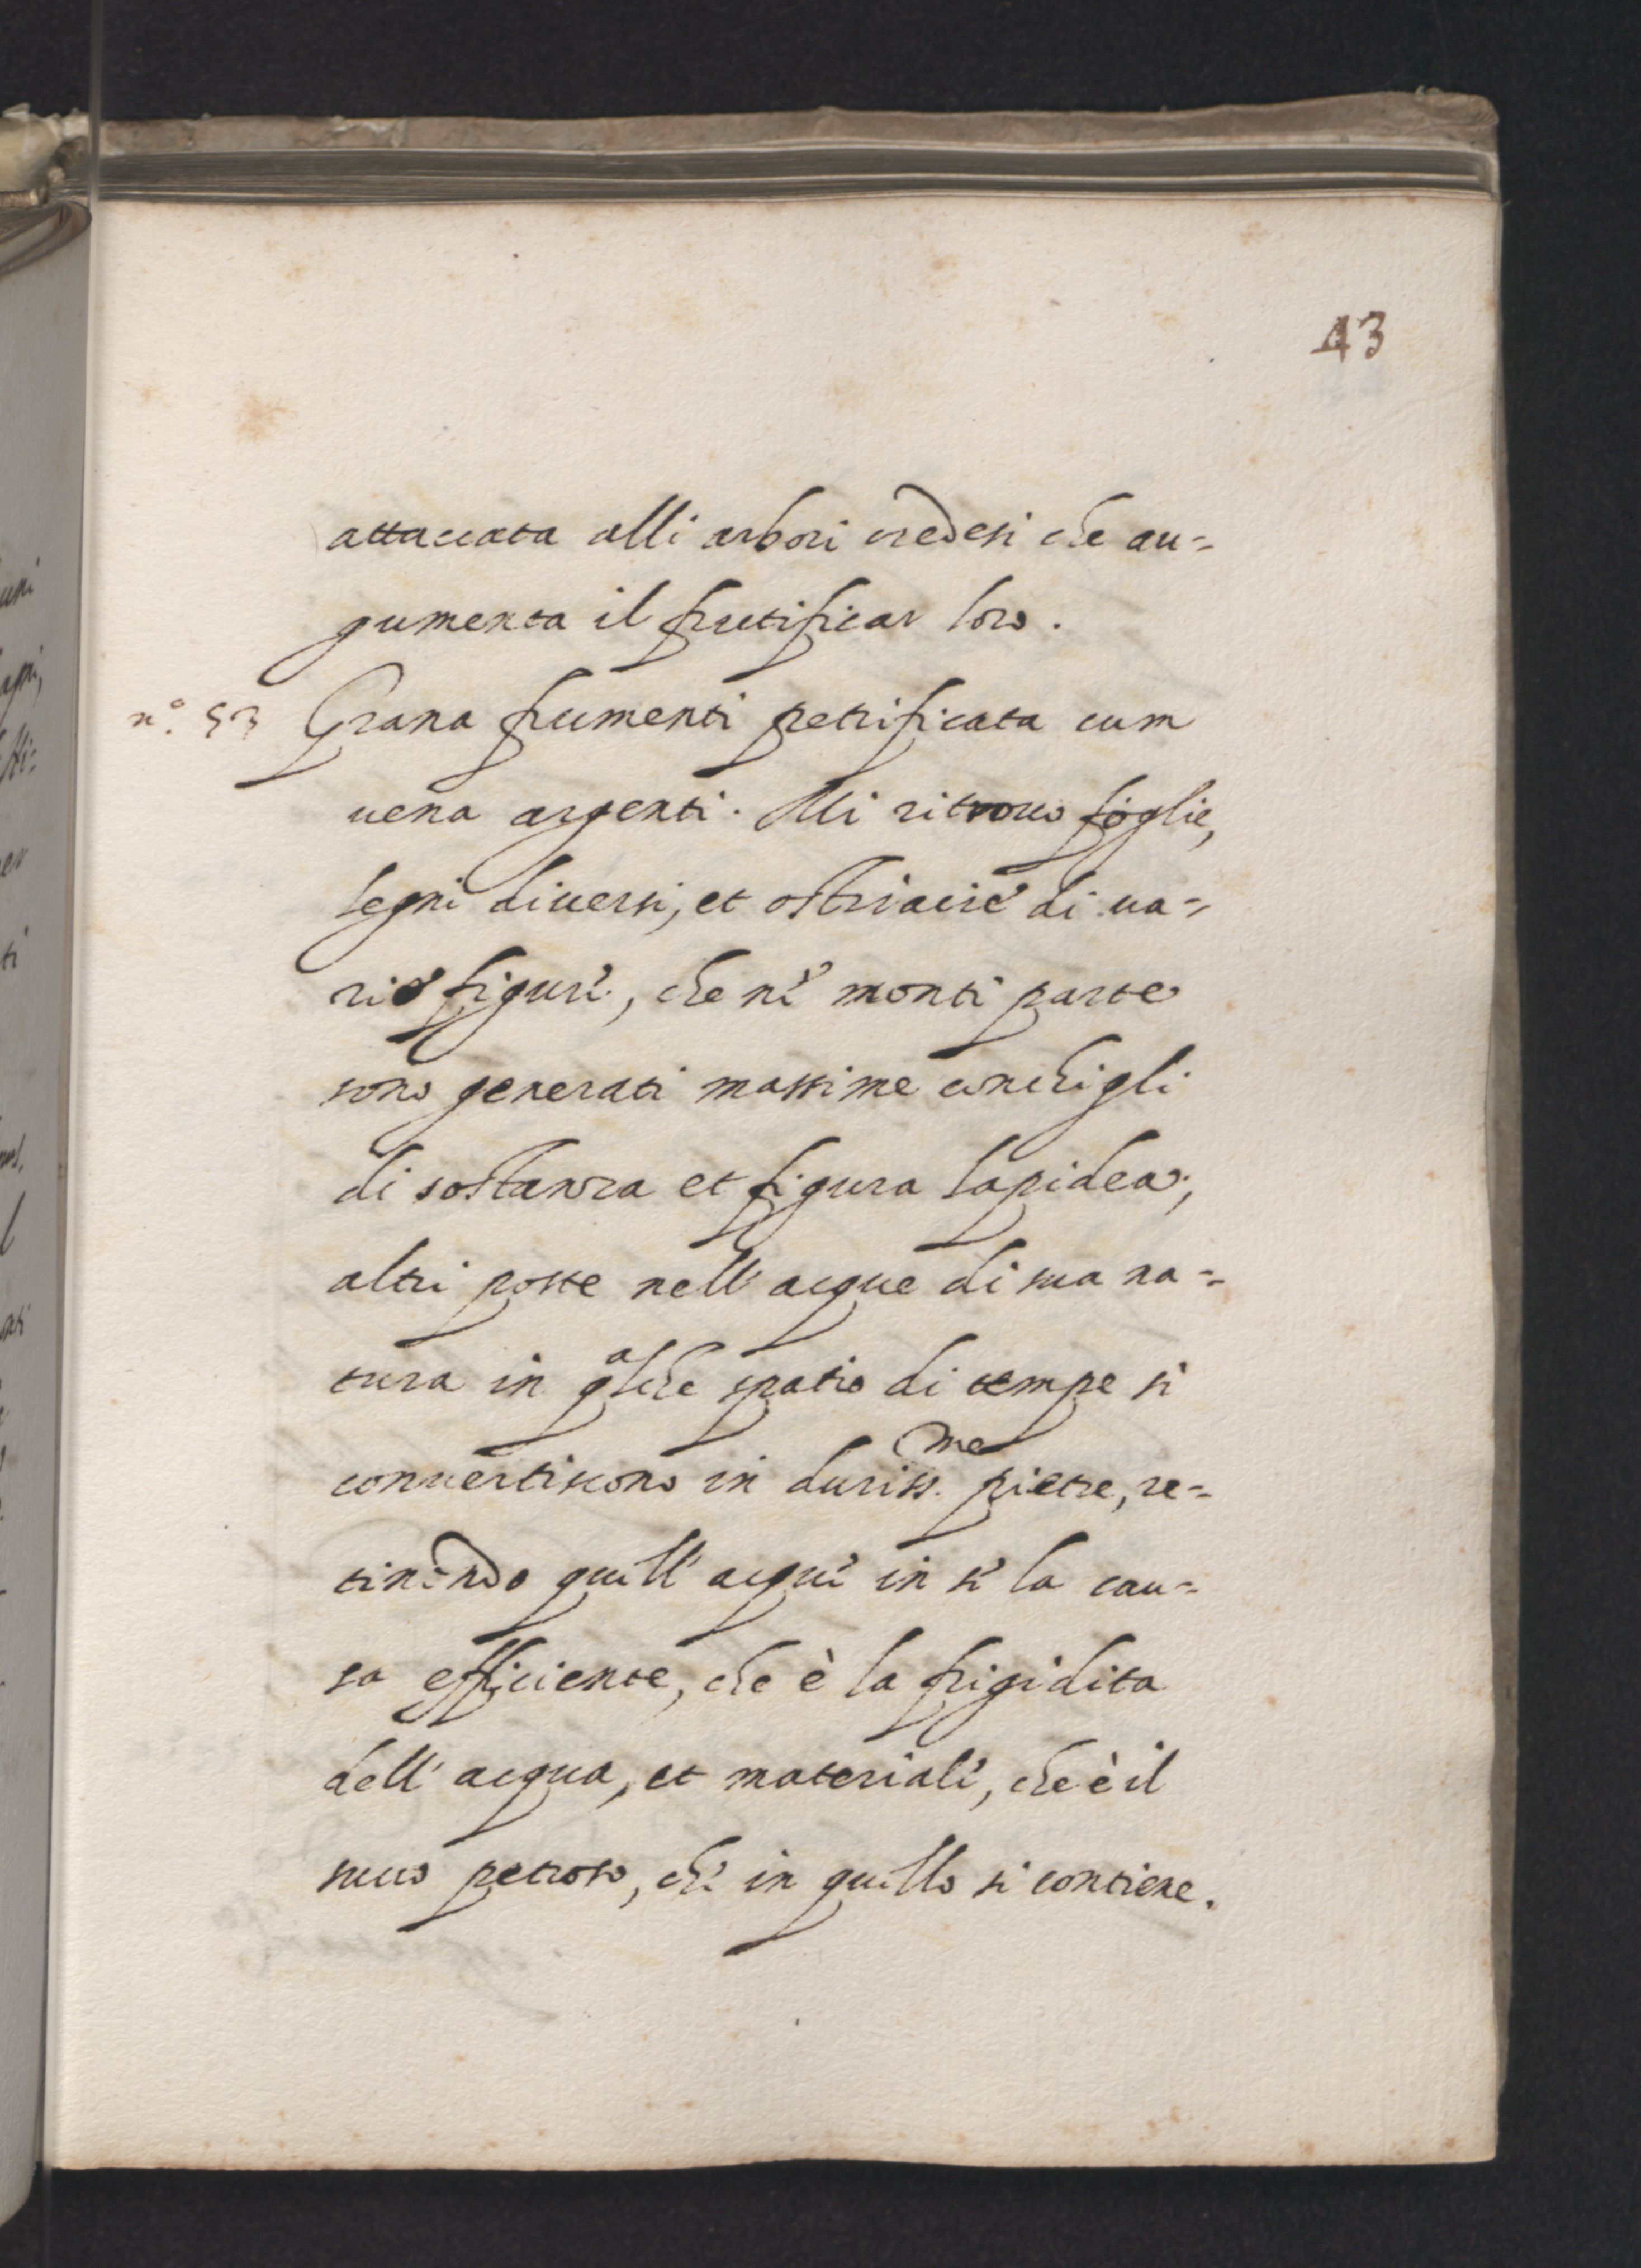 43
attaccata alli arbori credesi che au-
gumenta il frutificar loro.
n.° 53 Grana frumenti petrificata cum
uena argenti. Mi ritrouo foglie,
legni diuersi, et ostriacie di ua-
rie figure, che nè monti parte
sono generati massime conchigli
di sostanza et figura lapidea,
altri poste nell' acque di sua na-
tura in qlche spatio di tempe si
conuertiscono in duriss.me pietre, re-
tinendo quell' acque in sè la cau-
sa efficiente, che è la frigidita
dell' acqua, et materiale, che è il
succo petroso, che in quello si contiene.